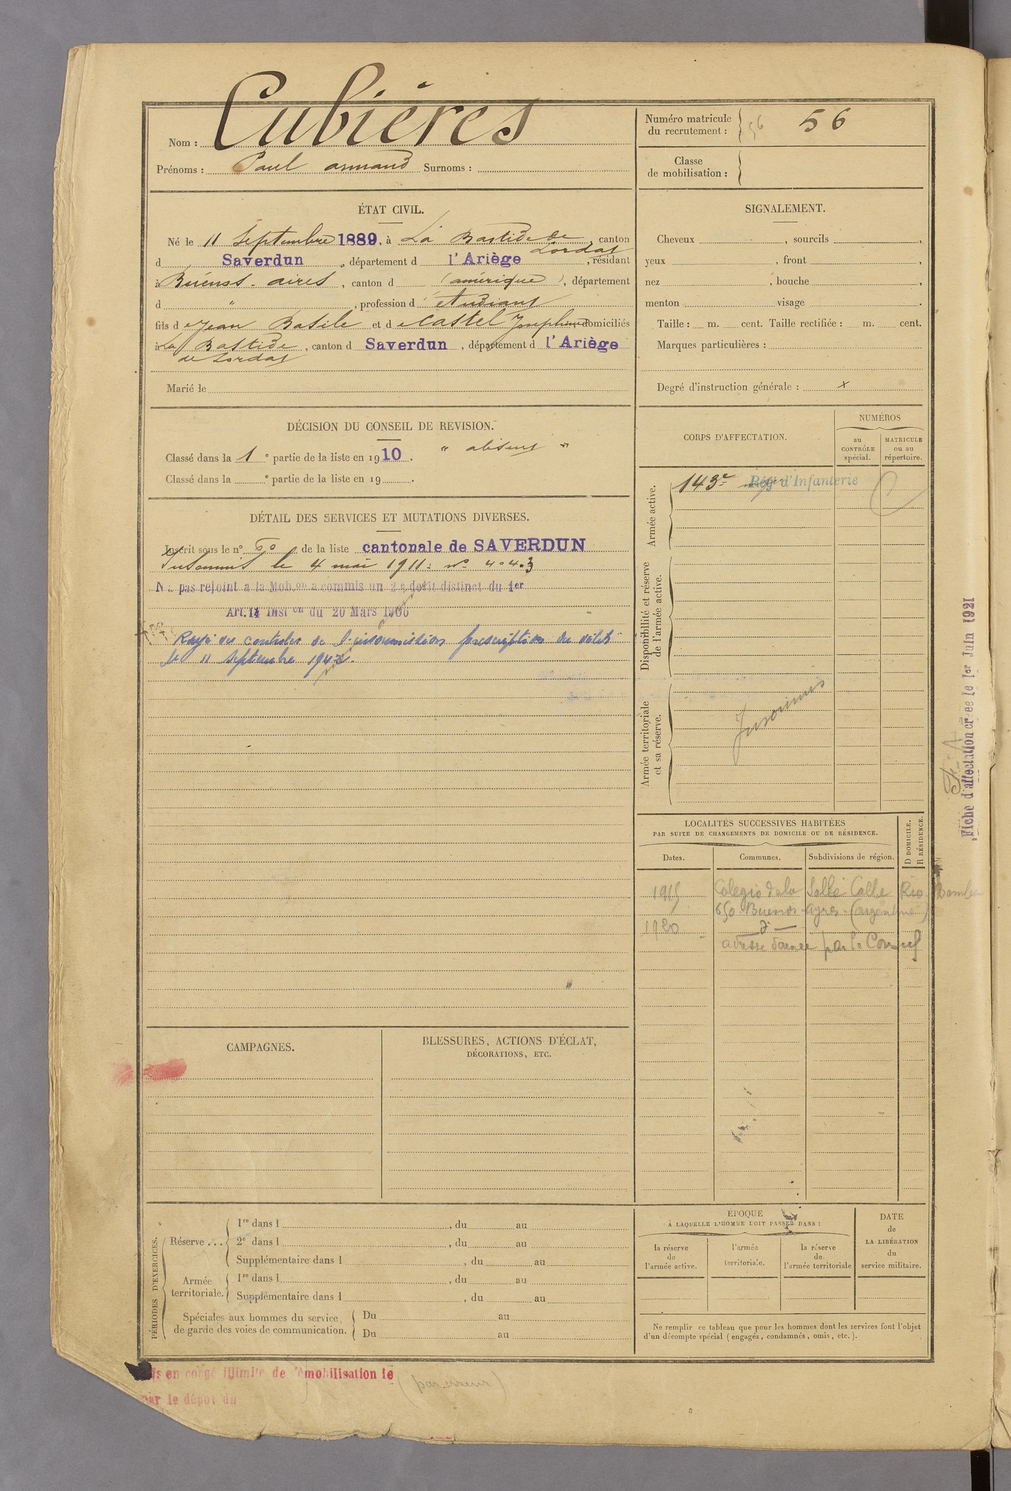 Nom : Cubières
Prénoms : Paul armand Surnoms :
Numéro matricule du recrutement : 56 56
Classe de mobilisation :
ÉTAT CIVIL.
Né le 11 Septembre 1889, à La Bastide de Lordat, canton
d Saverdun, département d l'Ariège, résidant
à Buenss-aires, canton d (amérique), département
d " , profession d étudiant
fils de Jean Basile et de Castel Joséphine domiciliés
à La Bastide de Lordat, canton d Saverdun, département d l'Ariège
Marié le
SIGNALEMENT.
Cheveux , sourcils ,
yeux , front ,
nez , bouche ,
menton visage
Taille : m. cent. Taille rectifiée : m. cent.
Marques particulières :
Degré d'instruction générale : x
DÉCISION DU CONSEIL DE REVISION.
Classé dans la 1e partie de la liste en 1910. " absent "
Classé dans la e partie de la liste en 19 .
DÉTAIL DES SERVICES ET MUTATIONS DIVERSES.
Inscrit sous le n° 50 de la liste cantonale de SAVERDUN
Insoumis le 4 mai 1911. n° 404.3
N'a pas rejoint a la Mob.on a commis un 2e délit distinct du 1er
Art. 14 Inst on du 20 Mars 1906
Rayé des contrôles de l'insoumission prescription du délit
le 11 septembre 1942.
CORPS D'AFFECTATION.
NUMÉROS
au CONTRÔLE spécial.
MATRICULE ou au répertoire.
Armée active.
143e Rég. d'Infanterie
Disponibilité et réserve de l'armée active.
Armée territoriale et sa réserve.
Insoumis
LOCALITÉS SUCCESSIVES HABITÉES
PAR SUITE DE CHANGEMENTS DE DOMICILE OU DE RÉSIDENCE.
Dates.
Communes.
Subdivisions de région.
D DOMICILE.
R RÉSIDENCE.
1915 Colegio de la Salle Calle Rio Bamba
650 Buenos-Ayres-(argentine)
1920 — d° —
adresse donnée par le Consul
Fiche d'affectation créée le 1er Juin 1921
CAMPAGNES.
BLESSURES, ACTIONS D'ÉCLAT,
DÉCORATIONS, ETC.
PÉRIODES D'EXERCICES.
Réserve ...
1re dans l , du au
2e dans l , du au
Supplémentaire dans l , du au
Armée territoriale.
1re dans l , du au
Supplémentaire dans l , du au
Spéciales aux hommes du service de garde des voies de communication.
Du au
Du au
ÉPOQUE
À LAQUELLE L'HOMME DOIT PASSER DANS :
la réserve de l'armée active.
l'armée territoriale.
la réserve de l'armée territoriale
DATE
de
LA LIBÉRATION
du
service militaire.
Ne remplir ce tableau que pour les hommes dont les services font l'objet
d'un décompte spécial (engagés, condamnés, omis, etc.).
is en congé illimité de démobilisation le (par erreur)
par le dépôt du